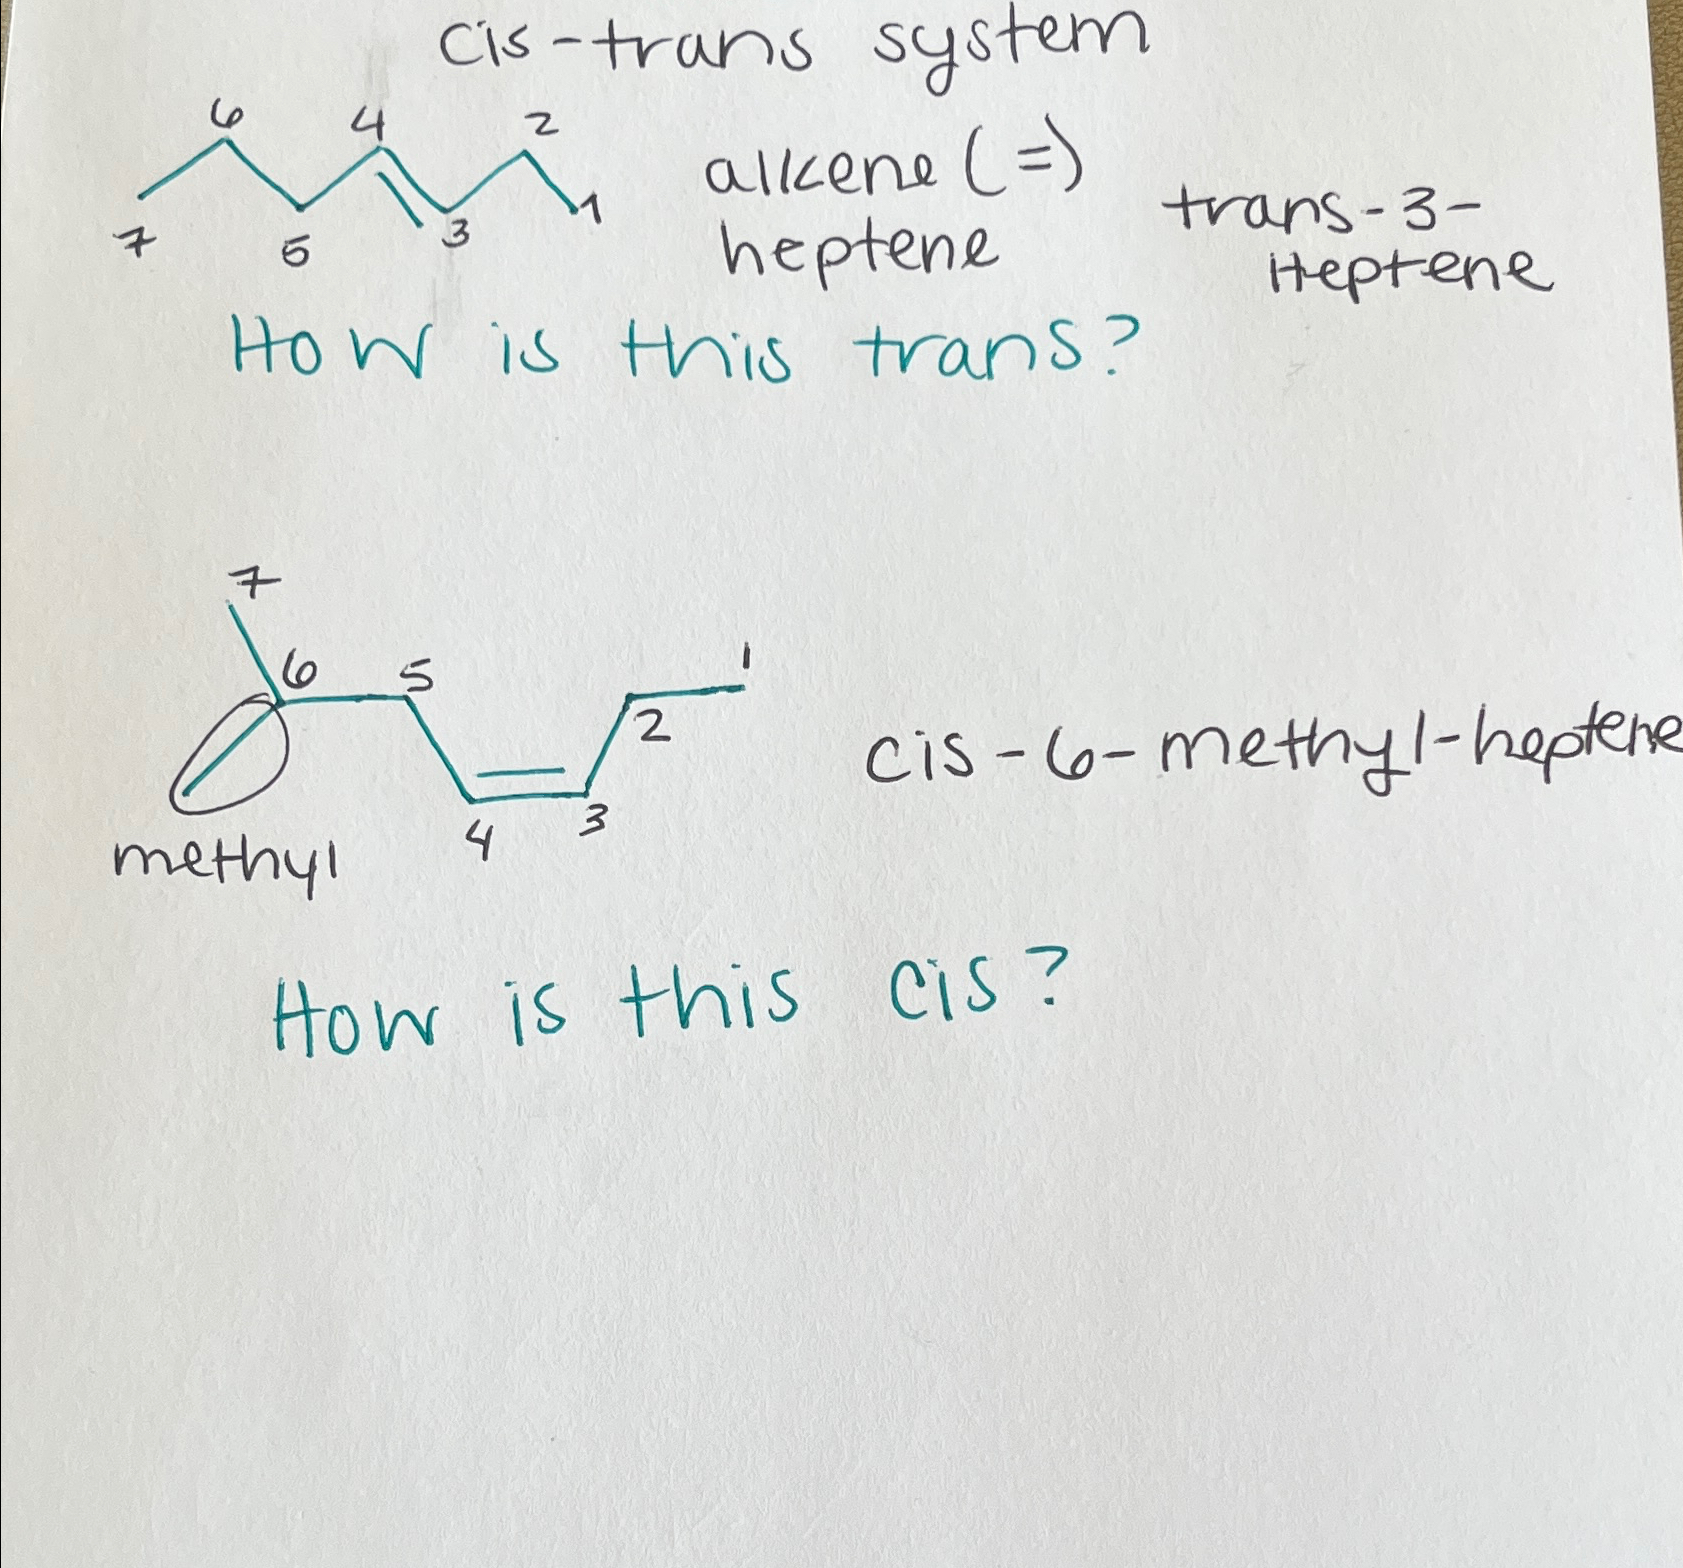 cis-trans system
6 4 2
alkene (=)
7 5 3 1
heptene
trans-3-
Heptene
How is this trans?
7
6 5 1
2
cis-6-methyl-heptene
4 3
methyl
How is this cis?